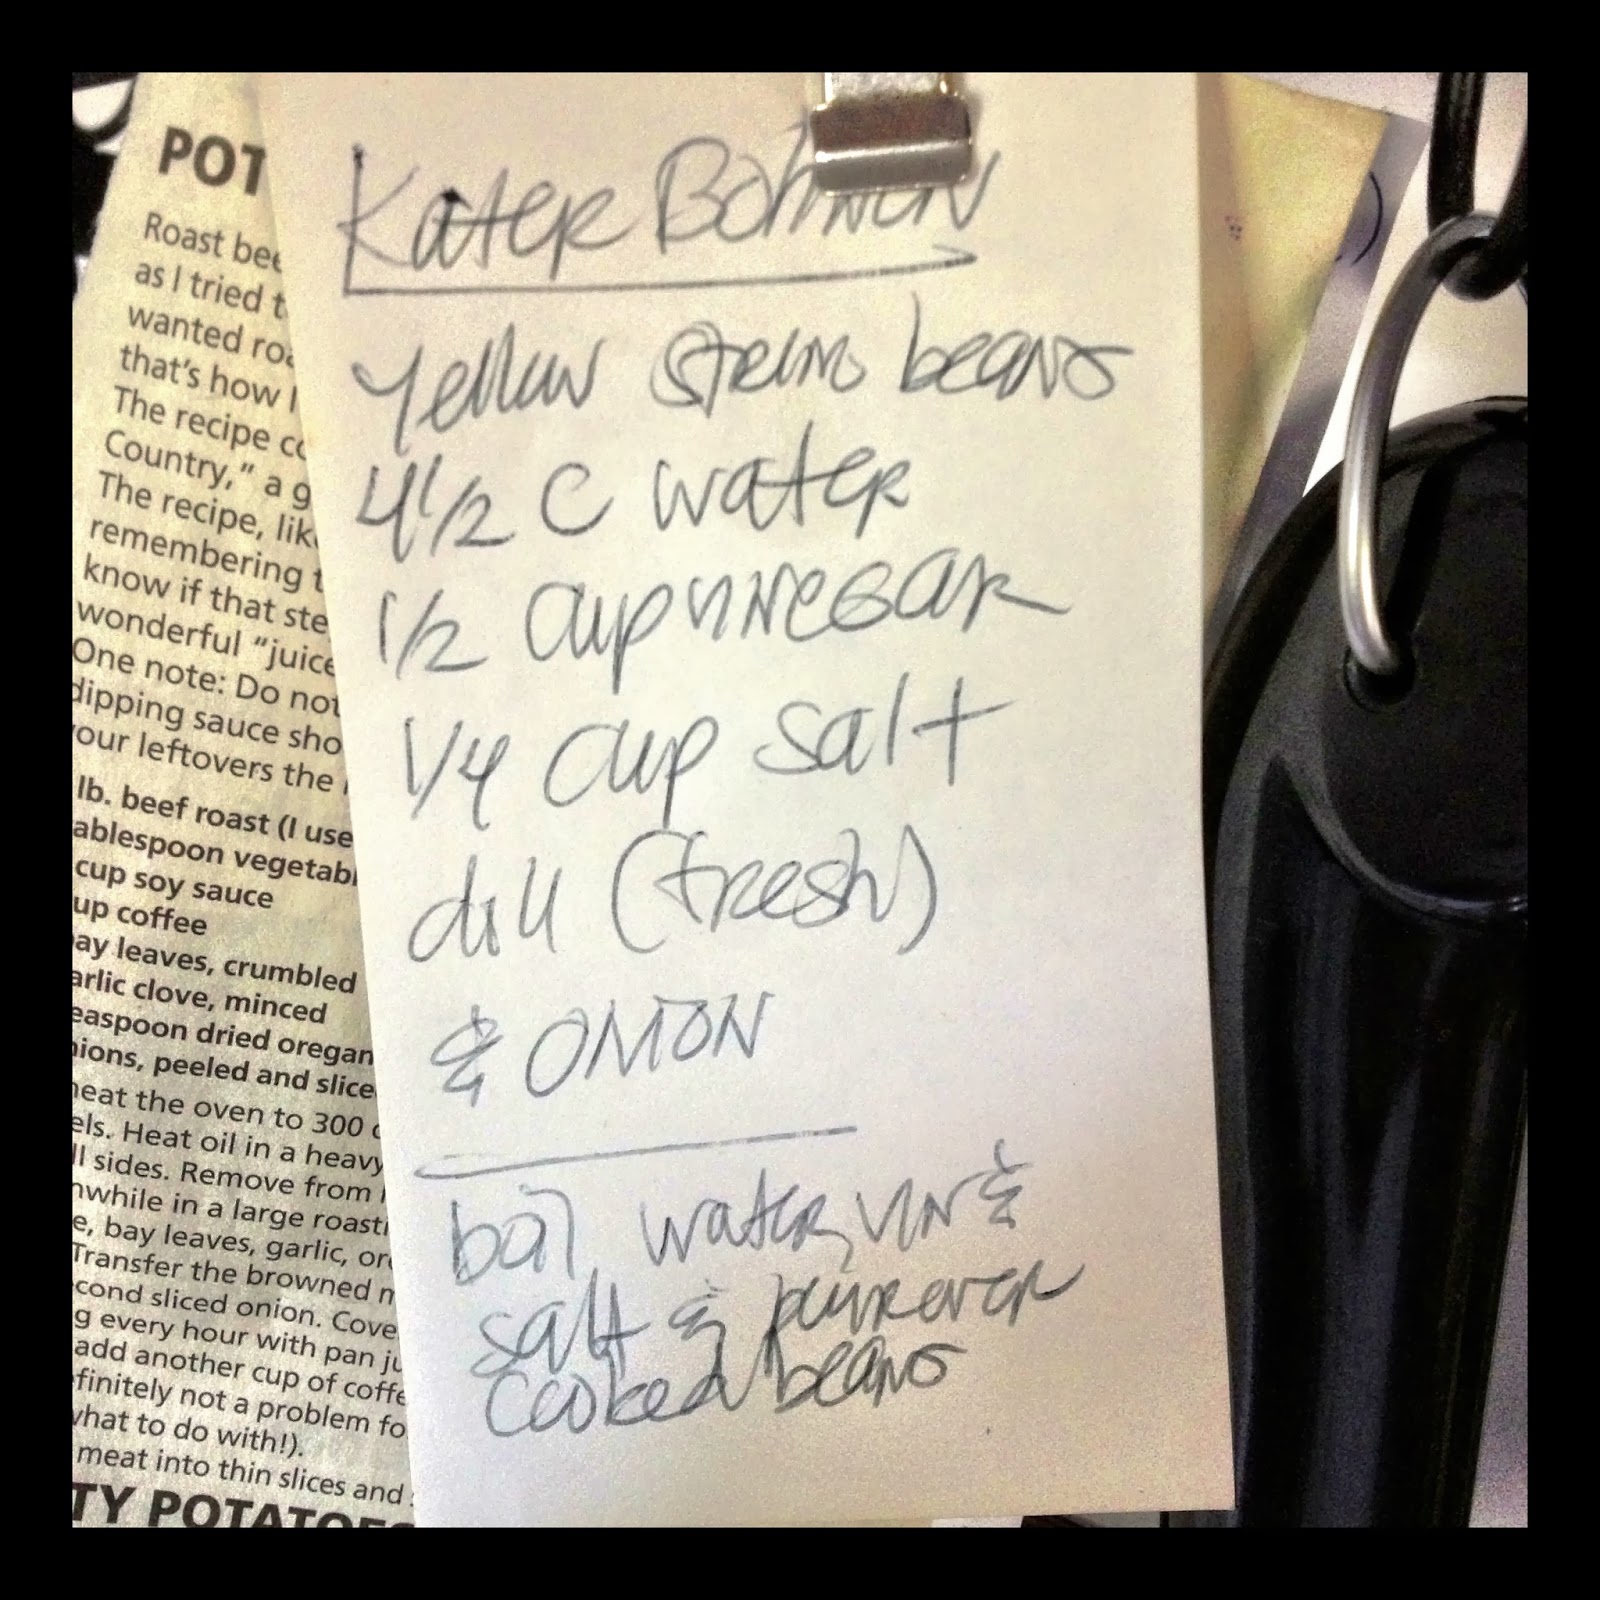 POT
Roast bee
as I tried t
wanted roa
that's how I
The recipe co
Country," a g
The recipe, lik
remembering t
know if that ste
wonderful "juice
One note: Do not
dipping sauce sho
your leftovers the
lb. beef roast (I use
ablespoon vegetabl
cup soy sauce
up coffee
ay leaves, crumbled
arlic clove, minced
easpoon dried oregan
nions, peeled and slice
heat the oven to 300
els. Heat oil in a heavy
ll sides. Remove from
nwhile in a large roasti
e, bay leaves, garlic, ore
Transfer the browned m
cond sliced onion. Cove
g every hour with pan ju
add another cup of coffe
finitely not a problem fo
what to do with!).
meat into thin slices and
TY POTATOES
Kater Bohnen
Yellow beans
4 1/2 C water
1/2 cup vinegar
1/4 cup salt
dill (fresh)
& ONION
boil water, vin &
salt & pour over
cooked beans